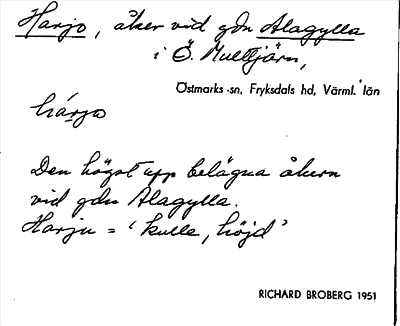 Harjo, åker vid gdn Alagylla
i Ö. Mulltjärn,
Östmarks sn, Fryksdals hd, Värml. län
hárjo
Den högst upp belägna åkern
vid gdn Alagylla.
Harju = 'kulle, höjd'
RICHARD BROBERG 1951